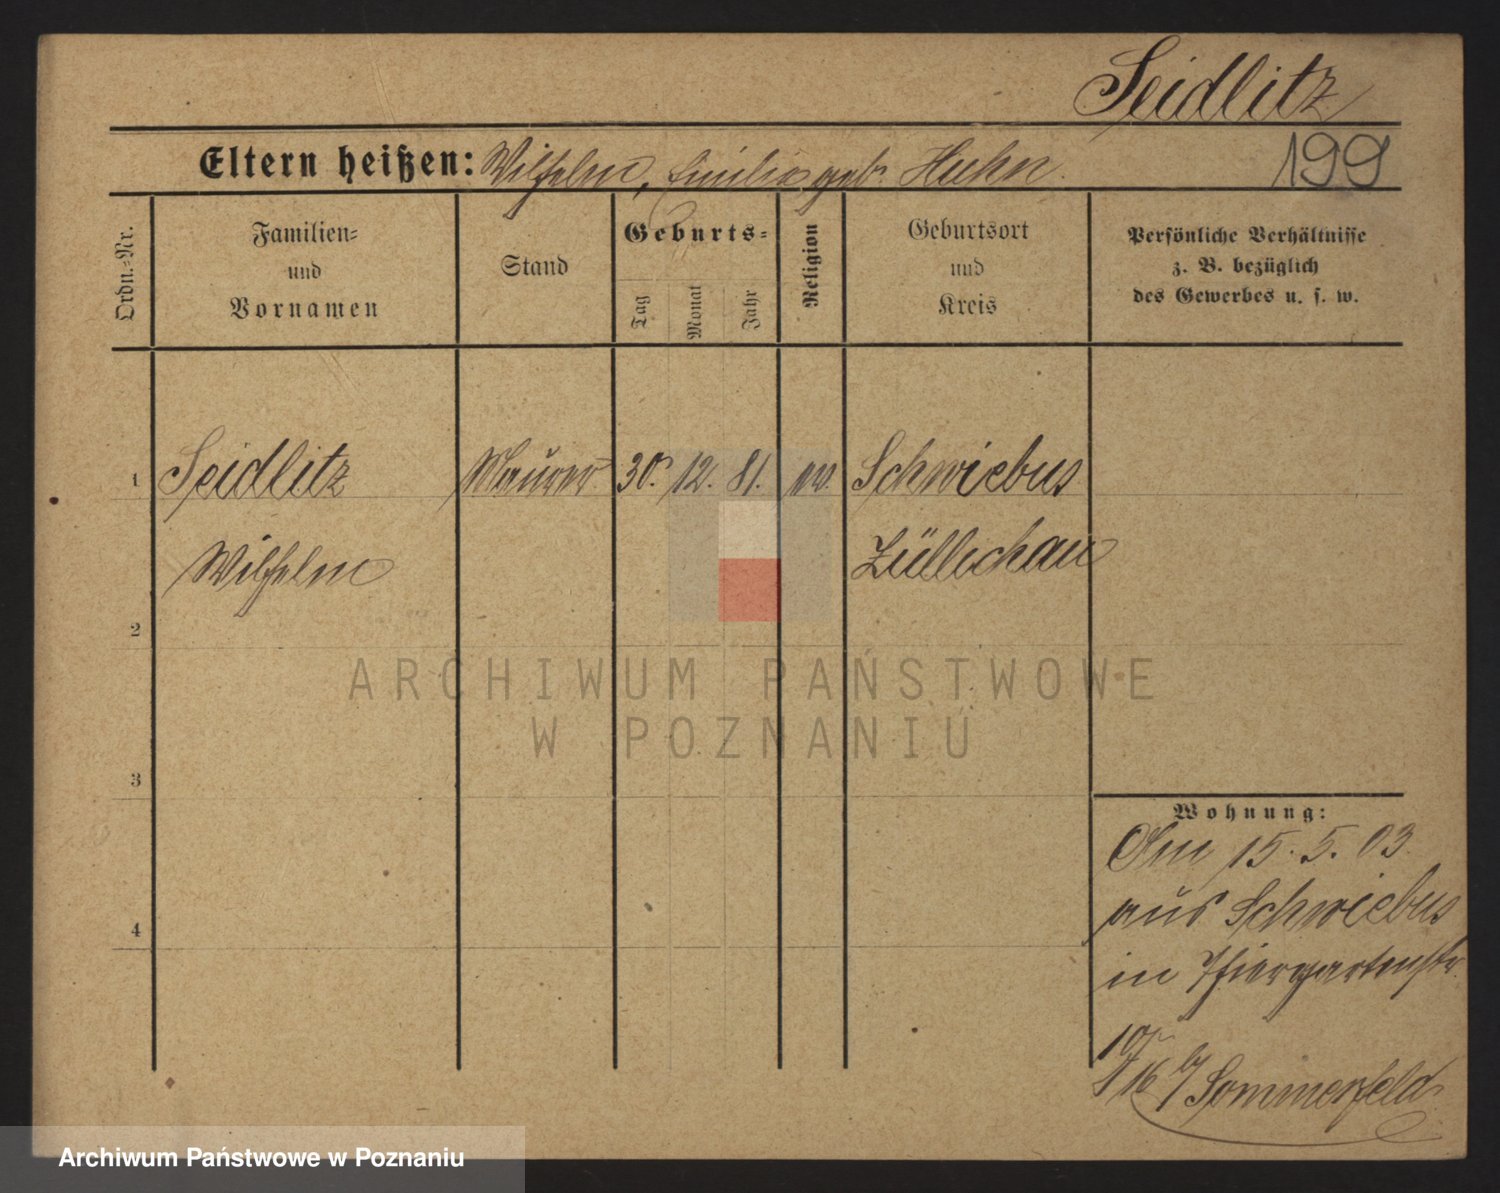 Seidlitz
Eltern heißen: Wilhelm, Emilie geb. Huhn.
199
Ordn.-Nr.
Familien-
und
Vornamen
Stand
Geburts-
Tag
Monat
Jahr
Religion
Geburtsort
und
Kreis
Persönliche Verhältnisse
z. B. bezüglich
des Gewerbes u. s. w.
1 Seidlitz Maurer 30. 12. 81. ev. Schwiebus
Wilhelm Züllichau
2
ARCHIWUM PAŃSTWOWE
W POZNANIU
3
Wohnung:
Am 15. 5. 03.
aus Schwiebus
4
in Thiergartenstr.
16 b/ Sommerfeld
Archiwum Państwowe w Poznaniu